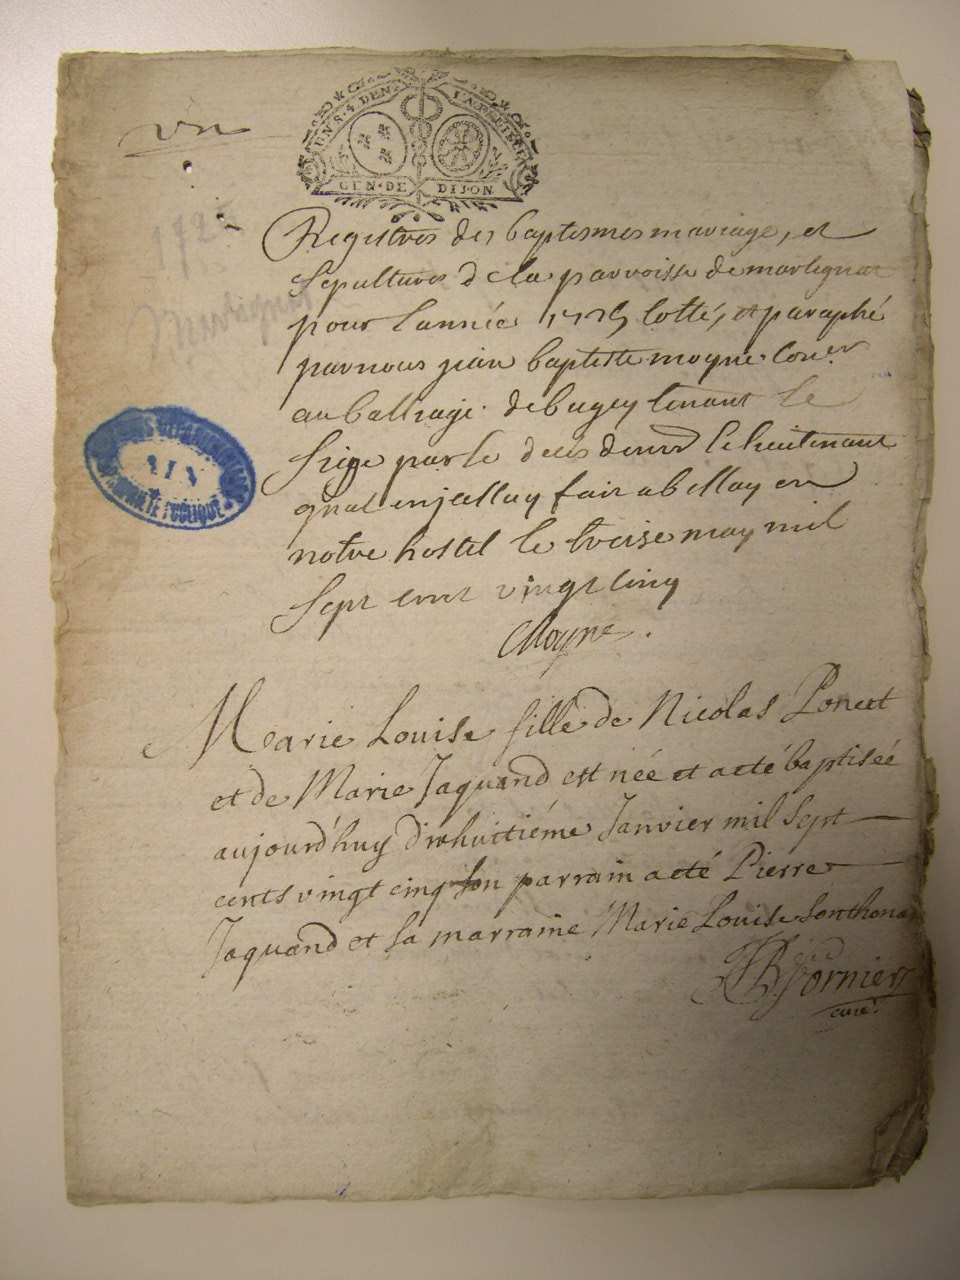 vn
UN S. 4. DEN. LA FEUILLE
GEN. DE DIJON
1725
Martignat
Registres des baptesmes mariage, et
sepultures de la parroisse de martignat
pour lannée 1725 cotté, et paraphé
par nous jean baptiste moyne Coner
au balliage de bugey tenant le
siege par le deces de le lieutenant
gnal fait a bellay en
notre hostel le treise may mil
sept cent vingt cinq
Moyne.
Marie Louise fille de Nicolas Poncet
et de Marie Jaquand est née et a eté baptisée
aujourd'huy dixhuitiéme Janvier mil sept
cents vingt cinq son parrain a eté Pierre
Jaquand et sa marraine Marie Louise Sonthona
AIN
Fornier
curé